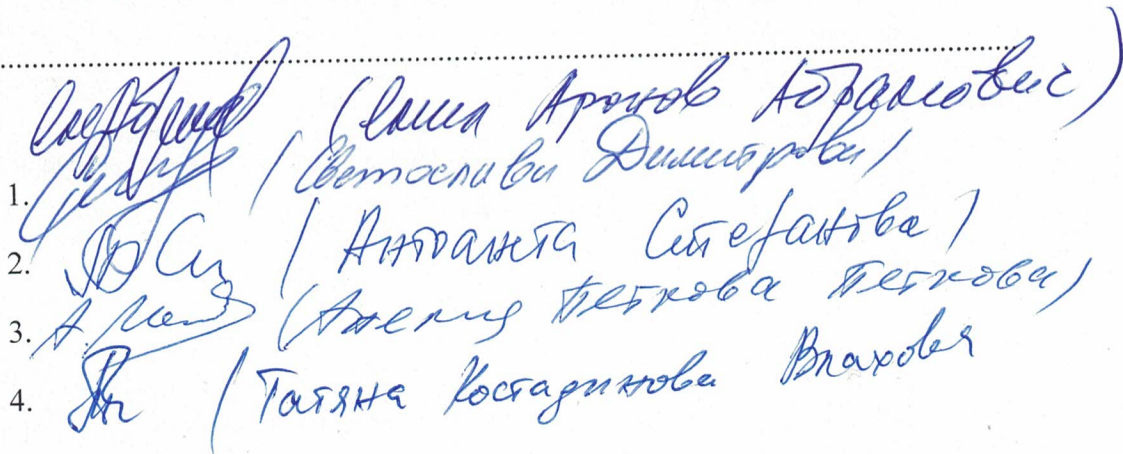 (Саша Аронов Абрамович)
1. /Светослава Димитрова/
2. /Антоанета Стефанова/
3. (Анелия Петкова Петкова)
4. /Татяна Костадинова Влахова